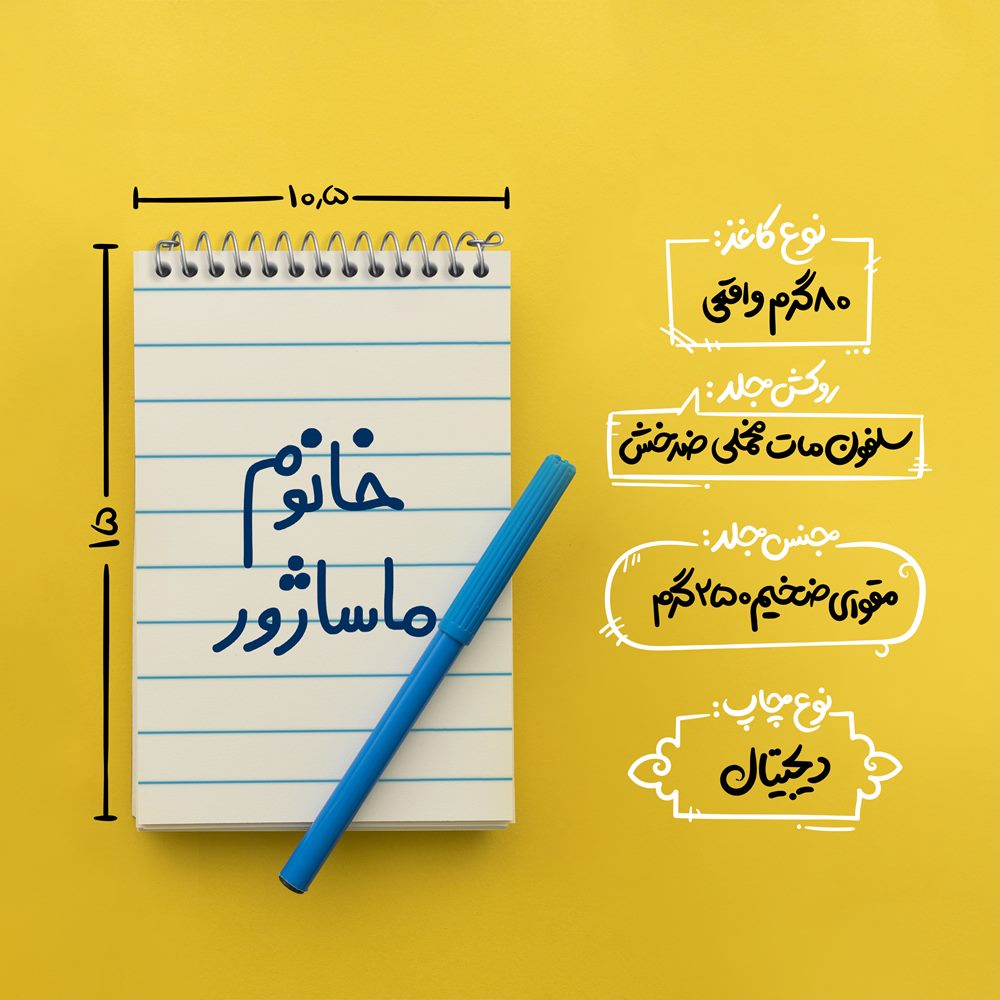 ۱۰٫۵
۱۵
خانوم
ماساژور
نوع کاغذ:
۸۰گرم واقعی
روکش جلد:
سلفون مات مخملی ضدخش
جنس جلد:
مقوای ضخیم ۲۵۰گرم
نوع چاپ:
دیجیتال